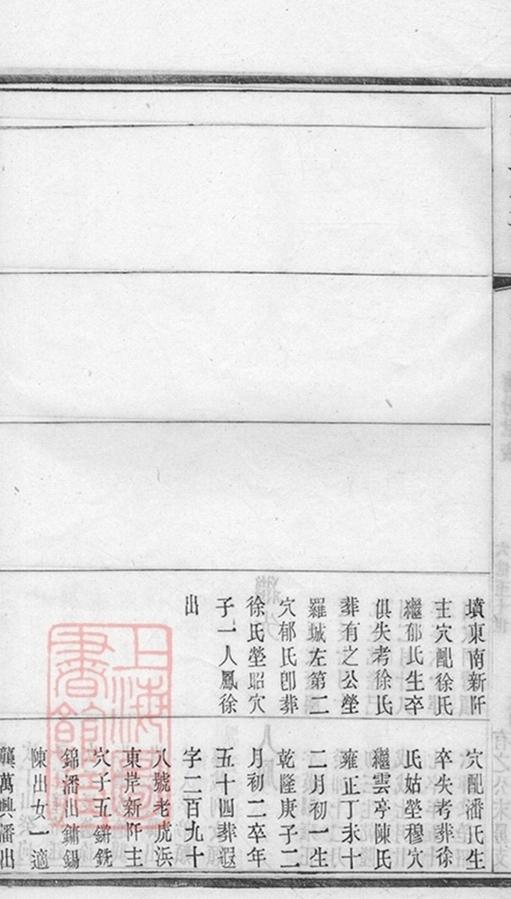 墳東南新阡
主穴配徐氏
繼郁氏生卒
俱失考徐氏
葬有之公塋
羅城左第二
穴郁氏卽葬
徐氏塋昭穴
子一人鳳徐
出
穴配潘氏生
卒失考葬徐
氏姑塋穆穴
繼雲亭陳氏
雍正丁未十
二月初一生
乾隆庚子二
月初二卒年
五十四葬遐
字二百九十
八號老虎浜
東岸新阡主
穴子五鏘銑
錦潘出鏽錫
陳出女一適
龔萬興潘出
上海圖書館藏